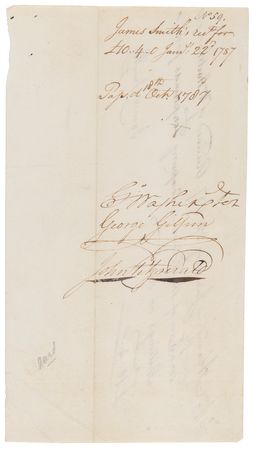 No 59.
James Smith's rect for
£10.4.0 Jany. 22d 1787
Pass'd 18th Octr 1787
Go Washington
George Gilpin
John Fitzgerald